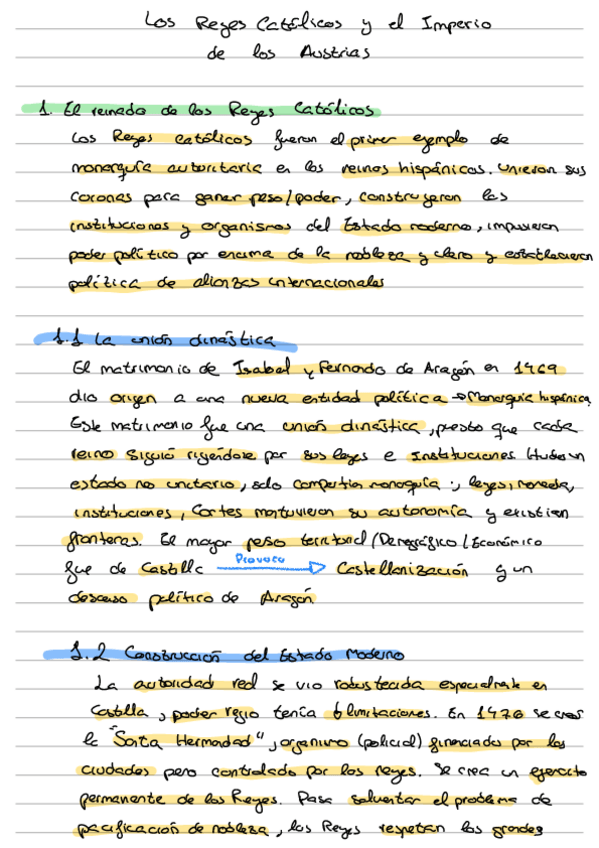 Los Reyes Católicos y el Imperio
de los Austrias
1. El reinado de los Reyes Católicos
Los Reyes católicos fueron el primer ejemplo de
monarquía autoritaria en los reinos hispánicos. Unieron sus
coronas para ganar peso/poder, construyeron las
instituciones y organismos del Estado moderno, impusieron
poder político por encima de la nobleza y clero y establecieron
política de alianzas internacionales
1.1 La unión dinástica
El matrimonio de Isabel y Fernando de Aragón en 1469
dio origen a una nueva entidad política → Monarquía hispánica.
Este matrimonio fue una unión dinástica, puesto que cada
reino siguió rigiéndose por sus leyes e Instituciones
estado no unitario, solo compartía monarquía ; leyes, moneda,
instituciones, Cortes mantuvieron su autonomía y existían
fronteras. El mayor peso territorial/Demográfico/Económico
fue de Castilla Provoca → Castellanización y un
descenso político de Aragón
1.2 Construcción del Estado Moderno
La autoridad real se vio robustecida especialmente en
Castilla, poder regio tenía limitaciones. En 1476 se creó
la "Santa Hermandad", organismo (policial) financiados por las
ciudades pero controlado por los reyes. Se crea un ejercito
permanente de los Reyes. Para solventar el problema de
pacificación de nobleza, los Reyes respetan los grandes